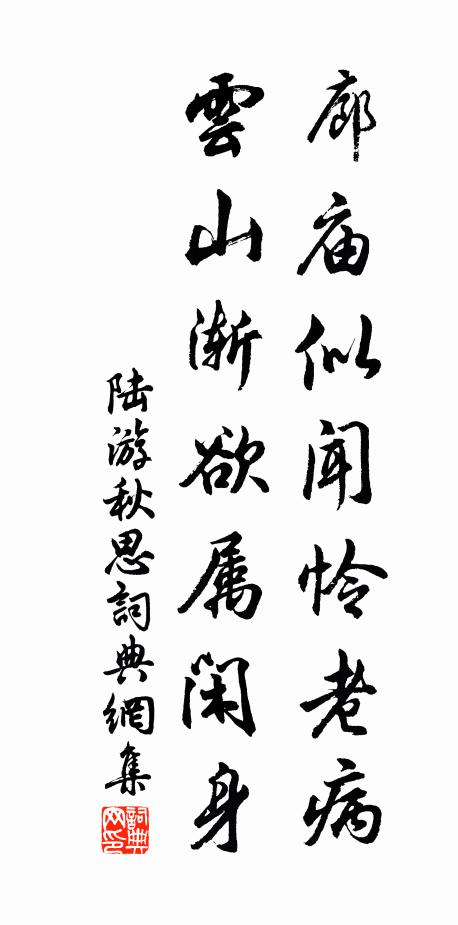 廊庙似闻怜老病
雲山渐欲属闲身
陆游秋思詞典網集
詞典网印